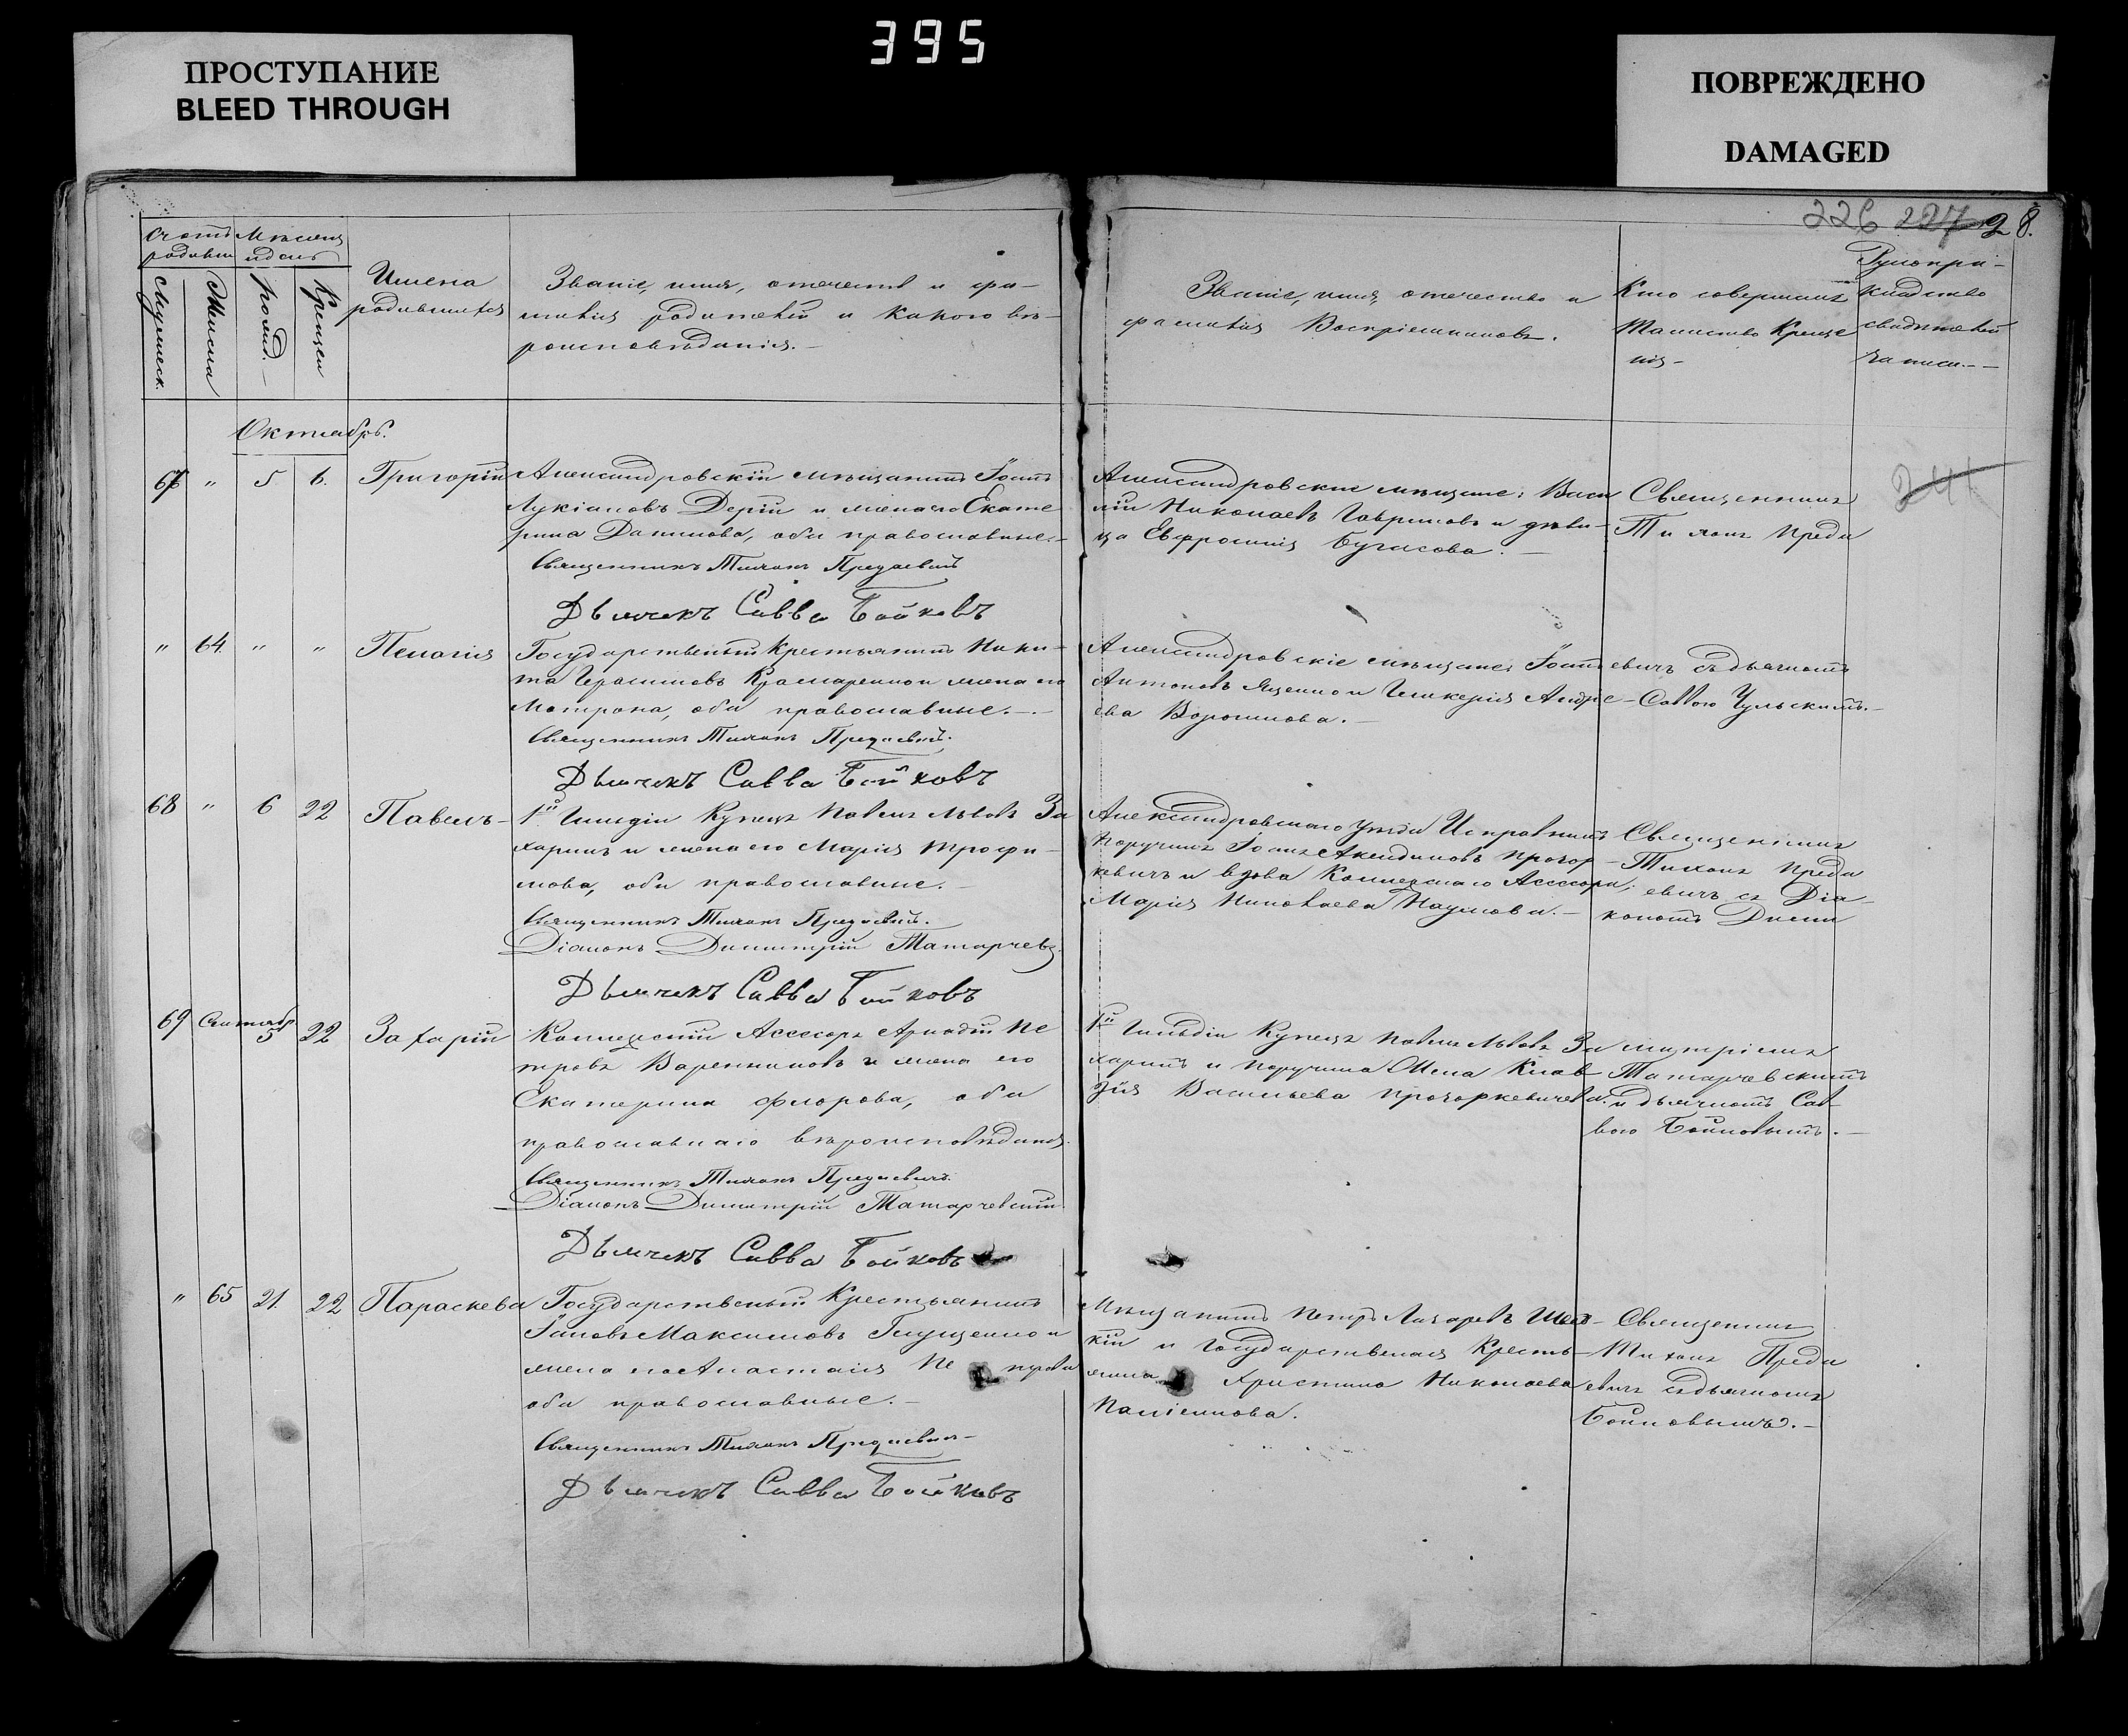 395
ПРОСТУПАНИЕ
BLEED THROUGH
ПОВРЕЖДЕНО
DAMAGED
226 227 28.
Счетъ родивш
Мужеск.
Женска
Мѣсяцъ и день
рожд.
Крещен
Имена
родившихся
Званіе, имя, отечество и фа-
милія родителей и какого вѣ-
роисповѣданія.
Званіе, имя, отечество и
фамилія Воспріемниковъ.
Кто совершилъ
Таинство Креще
нія
Рукопри-
кладство
свидѣтелей
записи.
Октябрь.
67 " 5 6. Григорій
Александровскій мѣщанинъ Іоаннъ
Лукіановъ Дерій и жена его Екате
рина Данилова, оба православные.
Священникъ Тихонъ Предаевичъ
Дьячекъ Савва Бойковъ
Александровские мѣщане: Васи
лій Николаевъ Гавриловъ и дѣви-
ца Евфросинія Бугасова.
Священникъ
Тихонъ Преда
241
" 64. " " Пелагія
Государственный Крестьянинъ Ники-
та Герасимовъ Крамаренко и жена его
Матрона, оба православные.
Священникъ Тихонъ Предаевичъ.
Дьячекъ Савва Бойковъ
Александровскіе мѣщане: Іоаннъ
Антоновъ Яценко и Гликерія Андре-
ева Воронинова.
евичъ съ дьячкомъ
Саввою Чульскимъ.
68 " 6 22 Павелъ
1й Гильдіи Купецъ Павелъ Львовъ За
харинъ и жена его Марія Трофи-
мова, оба православные.
Священникъ Тихонъ Предаевичъ.
Діаконъ Димитрій Татарчевс.
Дьячекъ Савва Бойковъ
Александровскаго уѣзда Исправникъ
Поручикъ Іоаннъ Акендиновъ Прохор-
кевичъ и вдова Коллежскаго Ассесора,
Марія Николаева Наумова.
Священникъ
Тихонъ Преда
евичъ съ Діа-
кономъ Дими
69 Сентябр 5 22 Захарій
Коллежскій Ассесоръ Аркадій Пе
тровъ Варенниковъ и жена его
Екатерина Флорова, оба
православнаго вѣроисповѣданія.
Священникъ Тихонъ Предаевичъ.
Діаконъ Димитрій Татарчевскій
Дьячекъ Савва Бойковъ
1й Гильдіи Купецъ Павелъ Львовъ За
харинъ и Поручика Жена Клав
дія Васильева Прохоркевичева.
митріемъ
Татарчевскимъ
и дьячкомъ Сав-
вою Бойковымъ.
" 65 21. 22 Параскева
Государственный Крестьянинъ
Іаковъ Максимовъ Глущенко и
жена его Анастасія Пе трова
оба православные.
Священникъ Тихонъ Предаевичъ
Дьячекъ Савва Бойковъ
Мѣщанинъ Петръ Лазаревъ
кій и Государственная Кресть-
янка Христина Николаева
Священникъ
Тихонъ Преда
евичъ съ дьячкомъ
Бойковымъ.